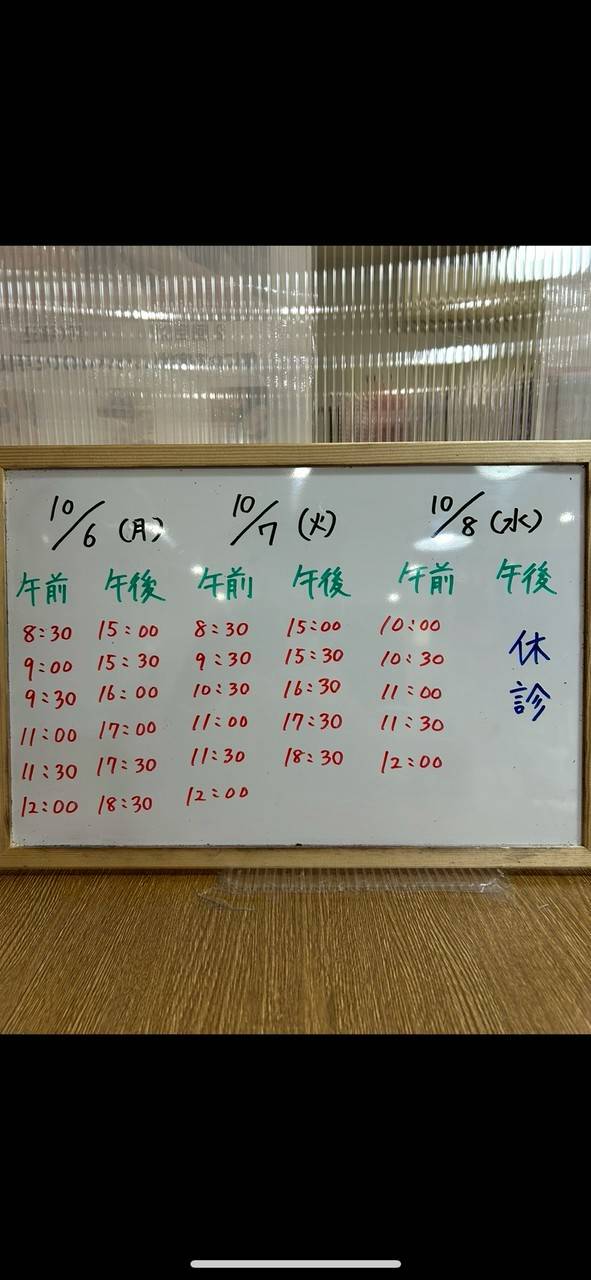 10/6(月) 10/7(火) 10/8(水)
午前 午後 午前 午後 午前 午後
8:30 15:00 8:30 15:00 10:00 休
9:00 15:30 9:30 15:30 10:30 診
9:30 16:00 10:30 16:30 11:00
11:00 17:00 11:00 17:30 11:30
11:30 17:30 11:30 18:30 12:00
12:00 18:30 12:00